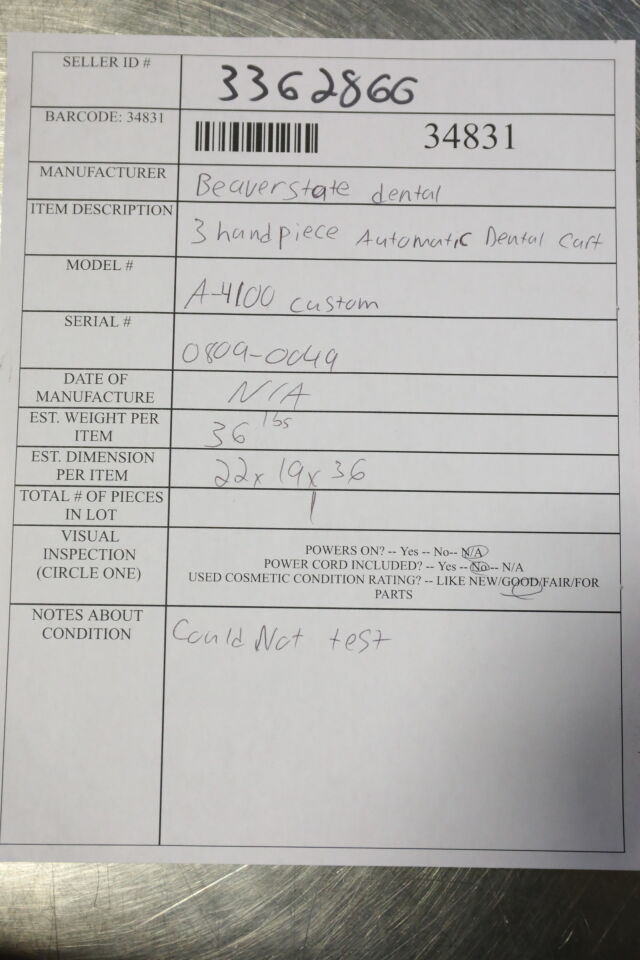 SELLER ID #
3362866
BARCODE: 34831
34831
MANUFACTURER
Beaverstate dental
ITEM DESCRIPTION
3 handpiece Automatic Dental Cart
MODEL #
A-4100 custom
SERIAL #
0809-0049
DATE OF
MANUFACTURE
N/A
EST. WEIGHT PER
ITEM
36 lbs
EST. DIMENSION
PER ITEM
22x 19x 36
TOTAL # OF PIECES
IN LOT
1
VISUAL
INSPECTION
(CIRCLE ONE)
POWERS ON? -- Yes -- No-- N/A
POWER CORD INCLUDED? -- Yes -- No -- N/A
USED COSMETIC CONDITION RATING? -- LIKE NEW/GOOD/FAIR/FOR
PARTS
NOTES ABOUT
CONDITION
Could Not test